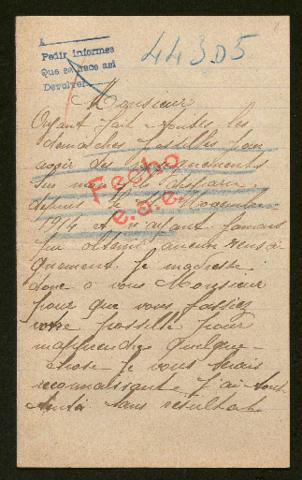 A
Pedir informes
Que se hace asi
Devolver
44305
Monsieur
Ayant fait toutes les
demarches possibles pour
avoir des renseignements
sur mon disparu
depuis le Novembre
1914 et n'ayant jamais
pu obtenir aucun rensei
gnement. Je m'adresse
donc a vous Monsieur
pour que vous fassiez
votre possible pour
m'apprendre quelque
chose je vous serais
reconnaissante j'ai tout
tenté sans resultat
Fecho
e.a.e.